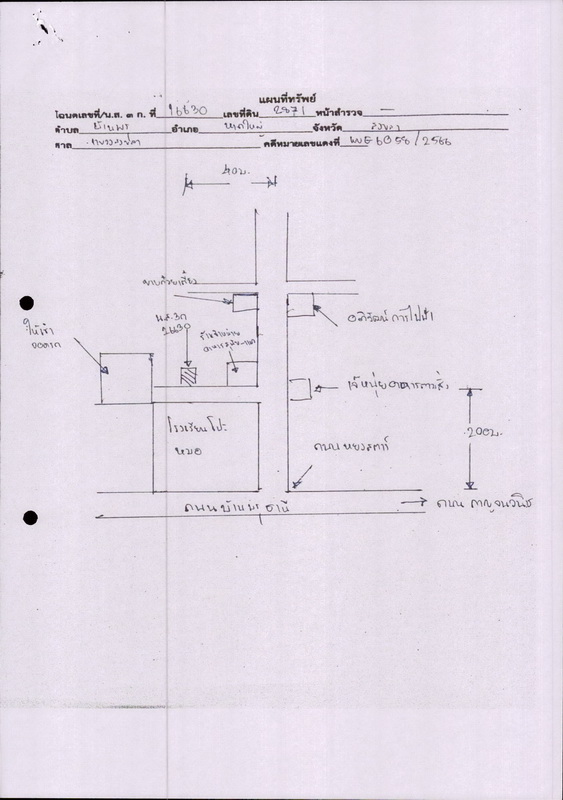 แผนที่ทรัพย์
โฉนดเลขที่/น.ส. ๓ ก. ที่ 16630 เลขที่ดิน 2871 หน้าสำรวจ —
ตำบล บ้านพรุ อำเภอ หาดใหญ่ จังหวัด สงขลา
ศาล คดีหมายเลขแดงที่ ผบE 6058/2566
40ม.
ขายก๋วยเตี๋ยว
น.ส.3ก
อภิวัฒน์ การไฟฟ้า
ให้เช่า
เจ๊หนุ่ย อาหารตามสั่ง
200ม.
โรงเรียนโปะ
หมอ
ถนน
ถนนบ้านพรุธานี
ถนน กาญจนวนิช